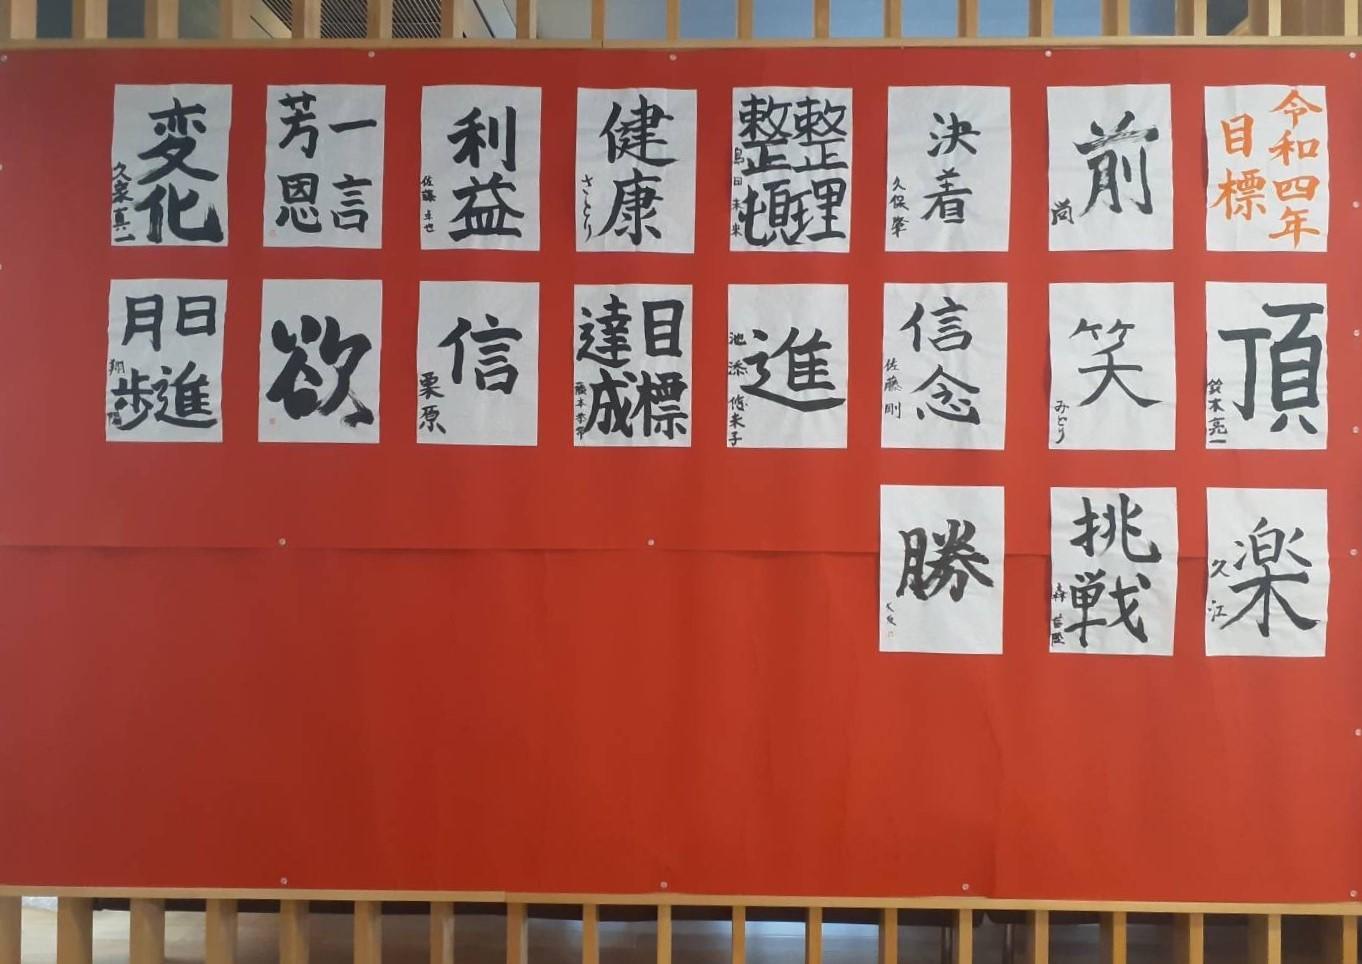 令和四年
目標
前
尚
決着
久保 肇
整理
整頓
島田 未来
健康
さとり
利益
佐藤 卓也
一言
芳恩
変化
久来真一
頂
鈴木亮一
笑
みどり
信念
佐藤 剛
進
池添 悠未子
目標
達成
信
栗原
欲
日進
月歩
楽
久江
挑戦
森
勝